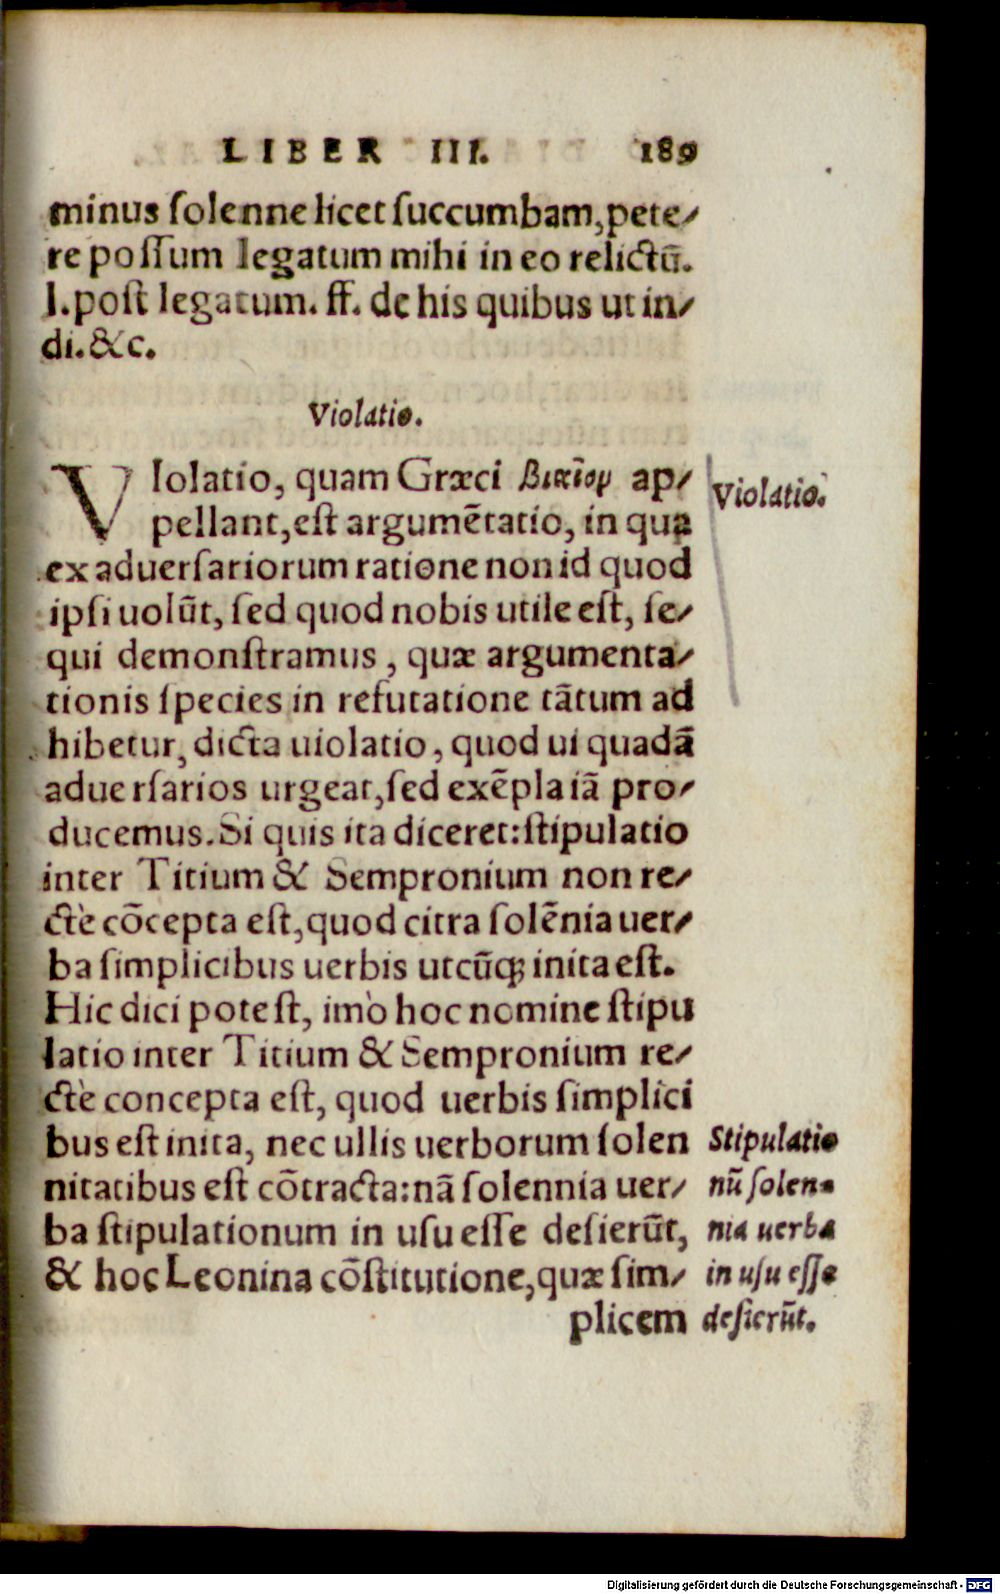 LIBER III. 189
minus ſolenne licet ſuccumbam, pete⸗
re poſſum legatum mihi in eo relictū.
l. poſt legatum. ff. de his quibus ut in⸗
di. &c.
Violatio.
VIolatio, quam Græci βικῖομ ap⸗
pellant, eſt argumētatio, in qua
ex aduerſariorum ratione non id quod
ipſi uolūt, ſed quod nobis utile eſt, ſe⸗
qui demonſtramus, quæ argumenta⸗
tionis ſpecies in refutatione tātum ad
hibetur, dicta uiolatio, quod ui quadā
aduerſarios urgeat, ſed exēpla iā pro⸗
ducemus. Si quis ita diceret: ſtipulatio
inter Titium & Sempronium non re⸗
ctè cōcepta eſt, quod citra ſolēnia uer⸗
ba ſimplicibus uerbis utcūq; inita eſt.
Hic dici poteſt, imò hoc nomine ſtipu
latio inter Titium & Sempronium re⸗
ctè concepta eſt, quod uerbis ſimplici
bus eſt inita, nec ullis uerborum ſolen
nitatibus eſt cōtracta: nā ſolennia uer⸗
ba ſtipulationum in uſu eſſe deſierūt,
& hoc Leonina cōſtitutione, quæ ſim⸗
plicem
Violatio.
Stipulatio
nū ſolen⸗
nia uerba
in uſu eſſe
deſierūt.
Digitalisierung gefördert durch die Deutsche Forschungsgemeinschaft - DFG